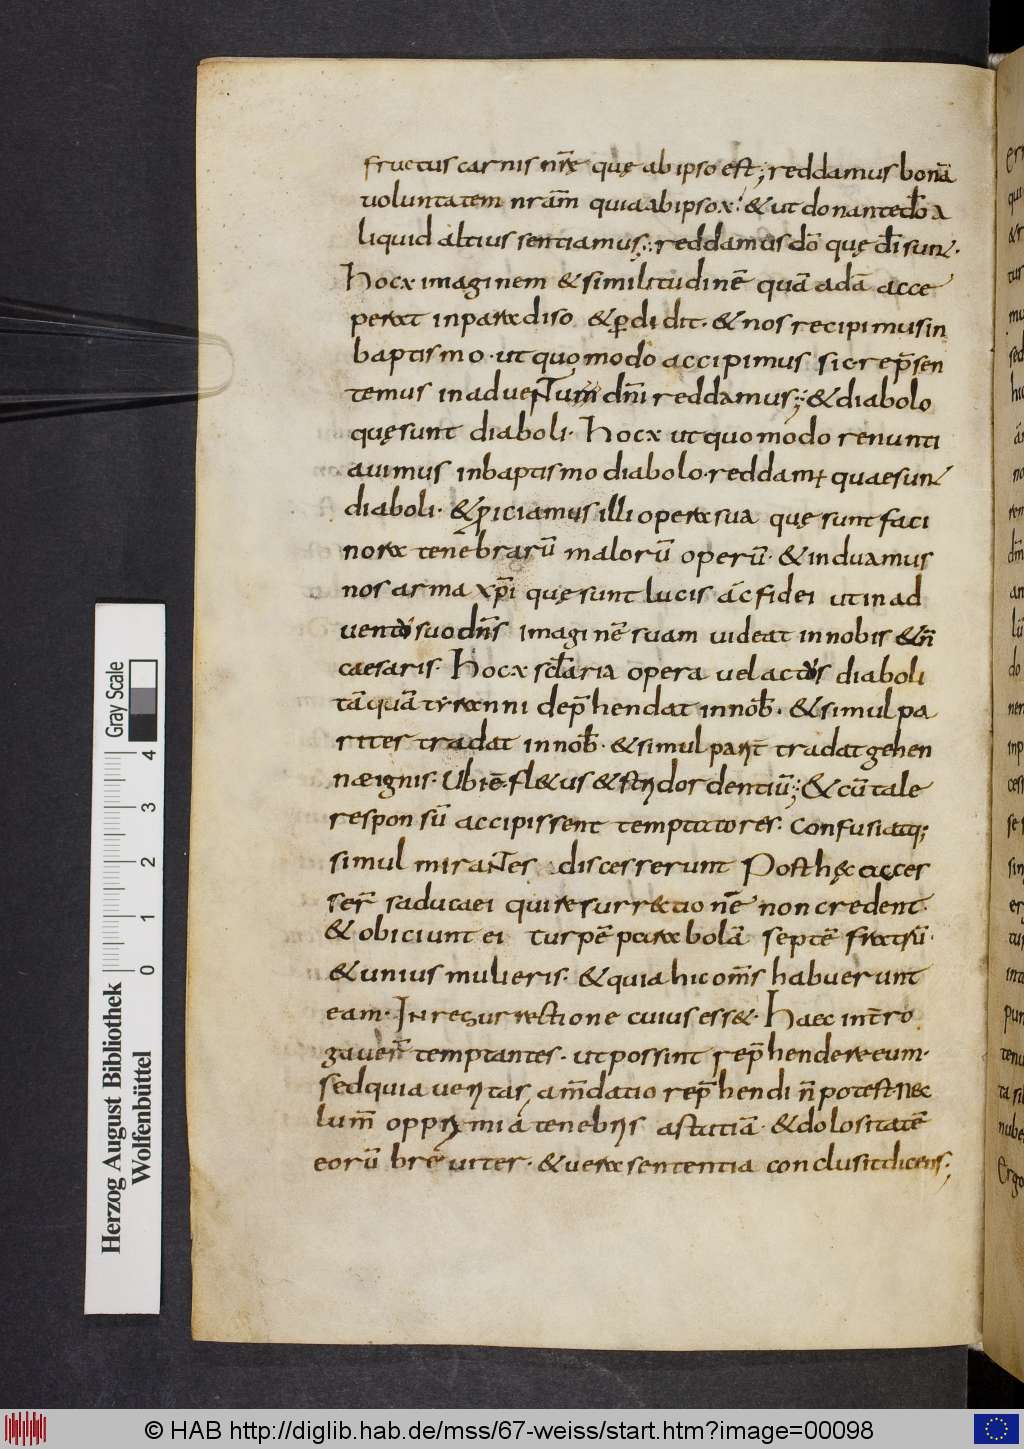 fructus carnis nrę̄ quę ab ipso est; reddamus bonā
uoluntatem nrām quia ab ipso x̄. & ut donante dō a
liquid altius sentiamus; reddamus dō quę dī sunt.
Hoc x̄ imaginem & similitudinē quā adā acce
perat in paradiso & ꝑdidit. & nos recipimus in
baptismo. ut quomodo accipimus sic rep̄sen
temus in aduentum dn̄i reddamus; & diabolo
quę sunt diaboli. Hoc x̄ ut quomodo renunti
auimus in baptismo diabolo. reddam; quae sunt
diaboli. & ꝓiciamus illi opera sua quę sunt faci
nora tenebrarū malorū operū. & induamus
nos arma xp̄i quę sunt lucis ac fidei ut in ad
uentu suo dn̄s imaginē suam uideat in nobis & n̄
caesaris. Hoc x̄ sc̄laria opera uel actus diaboli
tāquā tyranni dep̄hendat in nob̄. & simul pa
riter tradat in nob̄. & simul parit̄ tradat gehen
næ ignis. Ubi ē fl&us & stridor dentiū; & cū tale
responsū accipissent temptatores. Confusi atq;
simul mirantes discesserunt Post hęc acces
ser̄ saducaei qui resurr&tionē non credent.
& obiciunt ei turpē parabolā septē fratrū.
& unius mulieris. & quia hi com̄s habuerunt
eam. In resurrectione cuius ess&. Haec int̄ro
gauer̄ temptantes. ut possint rep̄hendere eum.
sed quia ueritas, am̄datio rep̄hendi n̄ potest. nec
lum̄ opprimi a tenebris astutiā. & dolositatē
eorū breuiter. & uera sententia conclusit dicens;
Gray Scale
4
3
2
1
0
Herzog August Bibliothek
Wolfenbüttel
© HAB http://diglib.hab.de/mss/67-weiss/start.htm?image=00098